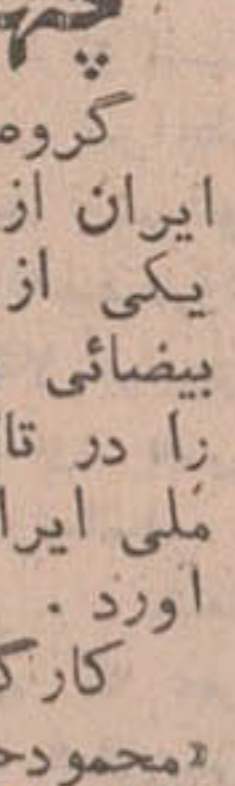 گروه
ایران از
یکی از
بیضائی
را در تا
ملی ایرا
اورد .
کارگ
«محمودح